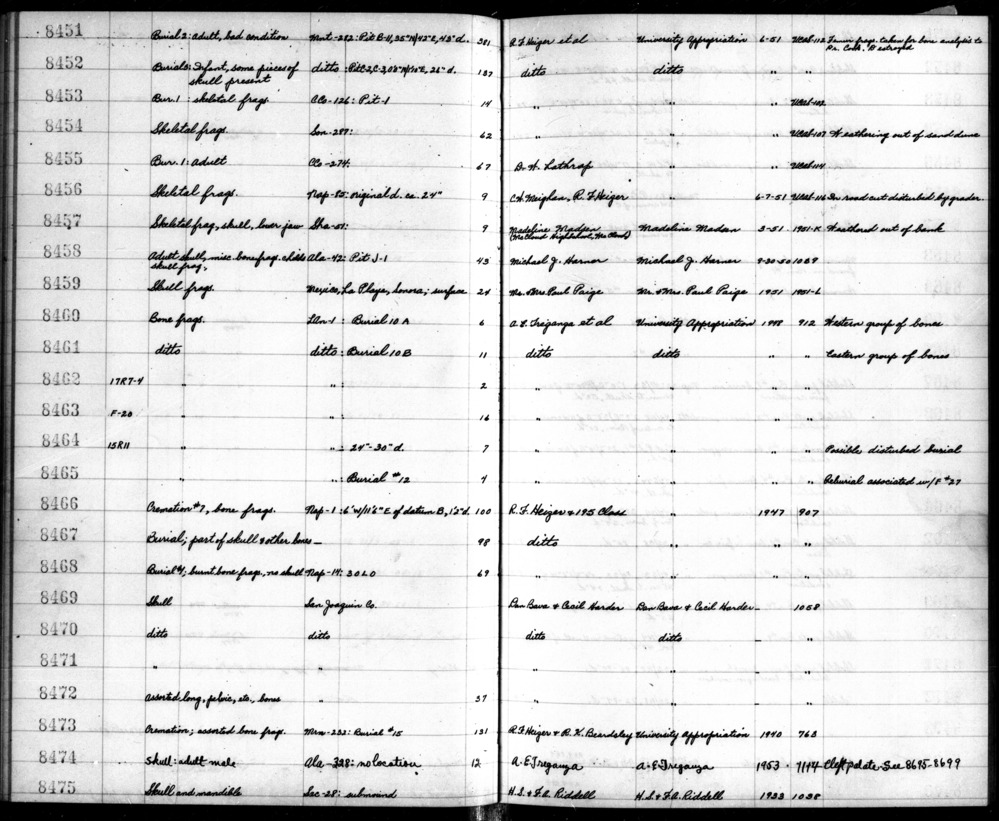 8451 Burial 2: adult, bad condition Mnt-282: Pit B-11, 35"N/42"E, 43"d. 381 R.F. Heizer et al University Appropriation 6-51 UCAS-112 Taken for bone analysis to
Dr. Cook. Destroyed
8452 Burial 3: Infant, some pieces of ditto: Pit 137 ditto ditto " "
skull present
8453 Bur. 1: skeletal frags. CCo-126: Pit-1 14 " " " UCAS-102
8454 Skeletal frags. Son-287: 62 " " " UCAS-107 Weathering out of sand dune
8455 Bur. 1: adult CCo-274: 67 D.W. Lathrap " " UCAS-114
8456 Skeletal frags. Nap-85: original d. ca. 24" 9 C.W. Meighan, R.F. Heizer " 6-7-51 UCAS-116 In road cut disturbed by grader.
8457 Skeletal frag, skull, lower jaw Sha-51: 9 Madeline Madsen Madeline Madsen 3-51 1951-K Weathered out of bank
(McCloud Highschool, McCloud)
8458 Adult skull, misc. bone frags. childs Ala-42: Pit J-1 43 Michael J. Harner Michael J. Harner 9-30-50 1039
skull frag.
8459 Skull frags. Mexico, La Playa, Sonora; surface 24 Mr. & Mrs. Paul Paige Mr. & Mrs. Paul Paige 1951 1951-L
8460 Bone frags. LAn-1: Burial 10 A 6 A.E. Treganza et al University Appropriation 1948 912 Western group of bones
8461 ditto ditto: Burial 10 B 11 ditto ditto " " Eastern group of bones
8462 17R7-4 " ": 2 " " " "
8463 F-20 " ": 16 " " " "
8464 15R11 " ": 24"-30" d. 7 " " " " Possible disturbed burial
8465 " ": Burial #12 4 " " " " Reburial associated w/F #27
8466 Cremation #7, bone frags. Nap-1: 6'W/11'6"E of datum B, 1'2"d. 100 R.F. Heizer & 195 Class " 1947 907
8467 Burial; part of skull & other bones — 98 ditto " " "
8468 Burial #1; burnt bone frags, no skull Nap-14: 30 L0 69 " " " "
8469 Skull San Joaquin Co. Dan Bava & Cecil Harder Dan Bava & Cecil Harder — 1058
8470 ditto ditto ditto ditto — "
8471 " " " " "
8472 assorted long, pelvis, etc., bones " 37 " " "
8473 Cremation; assorted bone frag. Mrn-232: Burial #15 131 R.F. Heizer & R.K. Beardsley University Appropriation 1940 763
8474 Skull: adult male Ala-328: no location 12 A.E. Treganza A.E. Treganza 1953 Cleft palate. See 8695-8699
8475 Skull and mandible Sac-28: submound H.S. & F.A. Riddell H.S. & F.A. Riddell 1933 1038